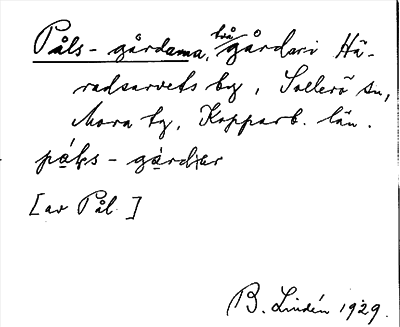 Påls-gårdarna, två gårdar i Hä-
radsarvets by, Sollerö sn,
Mora tg, Kopparb. län.
på̩ls-gårdar
[av Pål]
B. Lindén 1929.